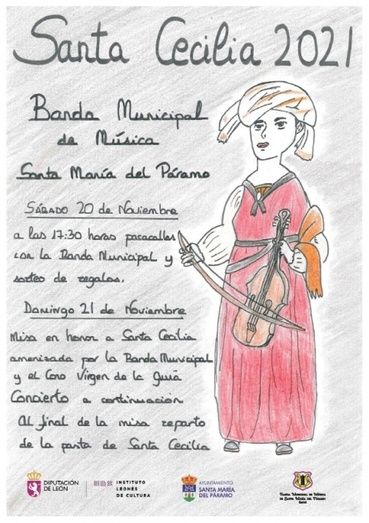 Santa Cecilia 2021
Banda Municipal
de Música
Santa María del Páramo
SÁBADO 20 de Noviembre
a las 17:30 horas pasacalles
con la Banda Municipal y
sorteo de regalos.
DOMINGO 21 de Noviembre
Misa en honor a Santa Cecilia
amenizada por la Banda Municipal
y el Coro Virgen de la Guía
Concierto a continuación
Al final de la misa reparto
de la pasta de Santa Cecilia
DIPUTACIÓN
DE LEÓN
INSTITUTO
LEONÉS
DE CULTURA
AYUNTAMIENTO
SANTA MARÍA
DEL PÁRAMO
Banda Municipal de Música
de Santa María del Páramo